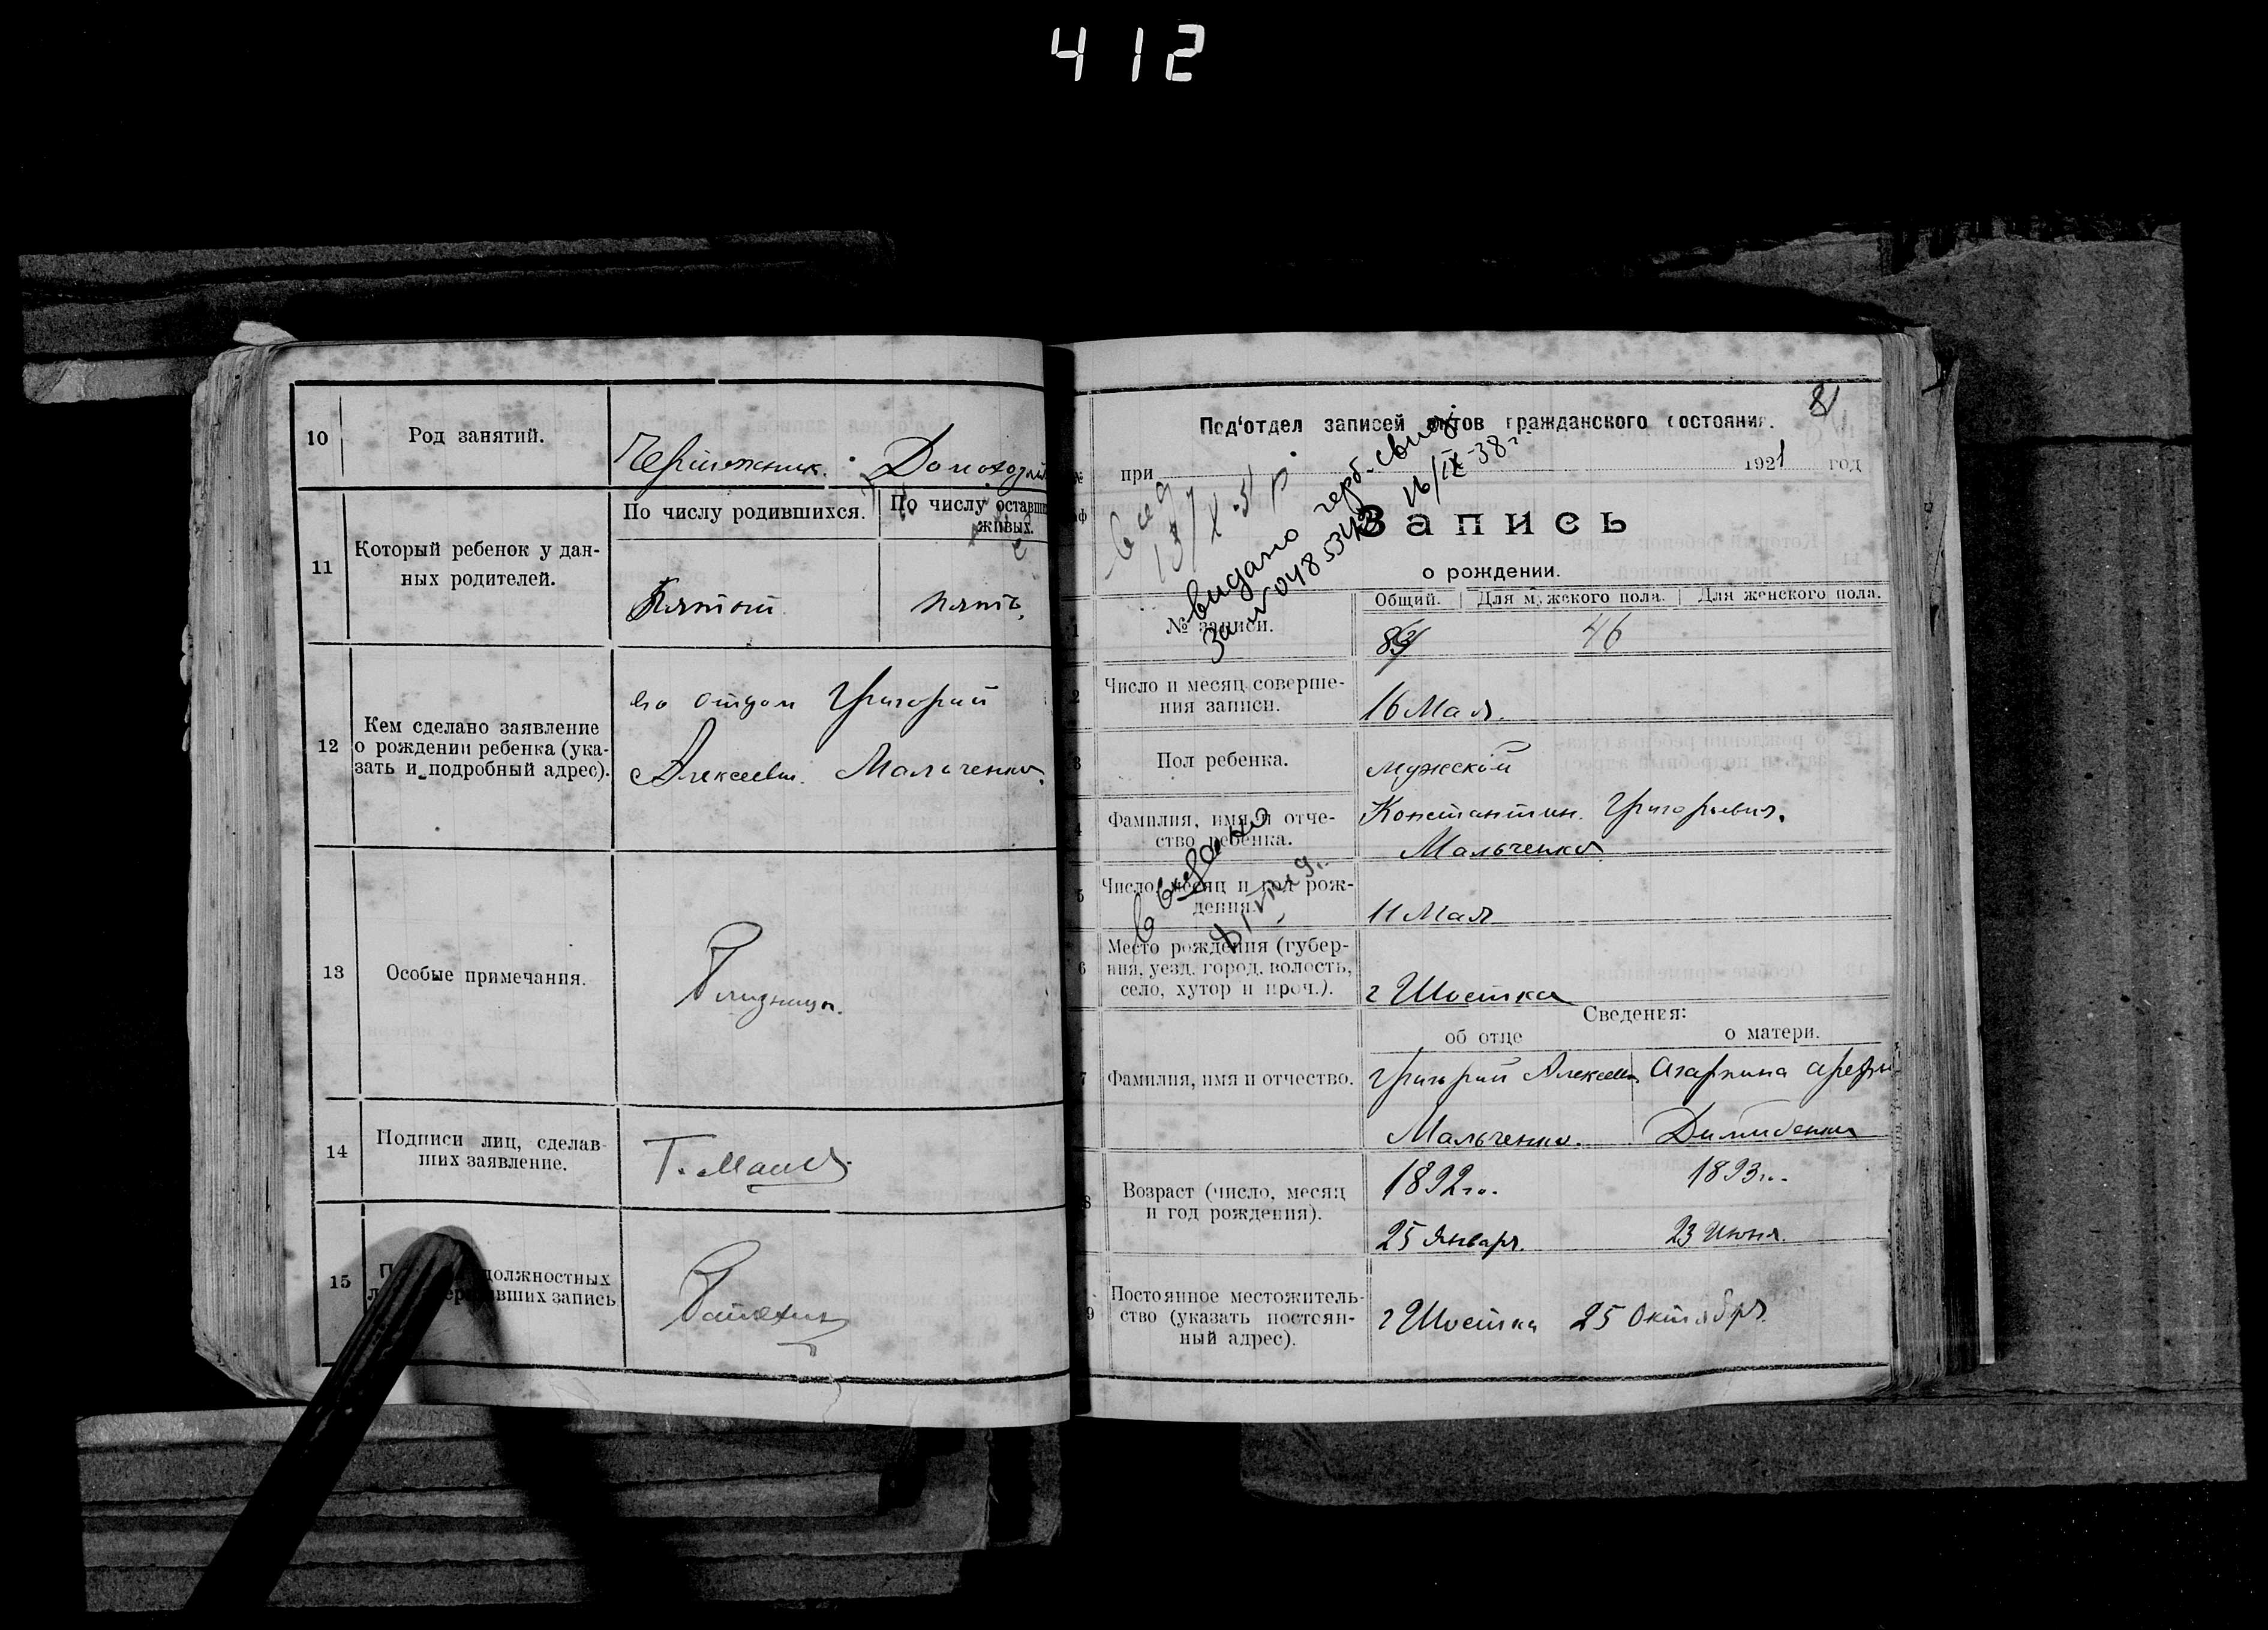 412
10
Род занятий.
Чертежник.
11
Который ребенок у дан-
ных родителей.
По числу родившихся.
По числу оставш
живых.
Пятый
пять
12
Кем сделано заявление
о рождении ребенка (ука-
зать и подробный адрес).
отцом Григорий
Алексеевич Мальченко.
13
Особые примечания.
Близницы.
14
Подписи лиц, сделав-
ших заявление.
15
должностных
вших запись
81
Под'отдел записей актов гражданского состояния.
при
1921 год
Запись
о рождении.
видано герб. свид.
за № 0485342 16/IX-38 г.
1
№ записи.
Общий.
Для мужского пола.
Для женского пола.
46
2
Число и месяц соверше-
ния записи.
16 Мая.
3
Пол ребенка.
мужской
4
Фамилия, имя и отче-
ство ребенка.
Константин Григорьевич.
Мальченко
5
Число, месяц и год рож-
дения.
11 Мая
6
Место рождения (губер-
ния, уезд, город, волость,
село, хутор и проч.).
г Шостка
Сведения:
об отце
о матери.
7
Фамилия, имя и отчество.
Григорий Алексеев.
Мальченко.
8
Возраст (число, месяц
и год рождения).
1892 г.
1893 г.
25 Января.
23 Июня.
9
Постоянное местожитель-
ство (указать постоян-
ный адрес).
г Шостка 25 Октября